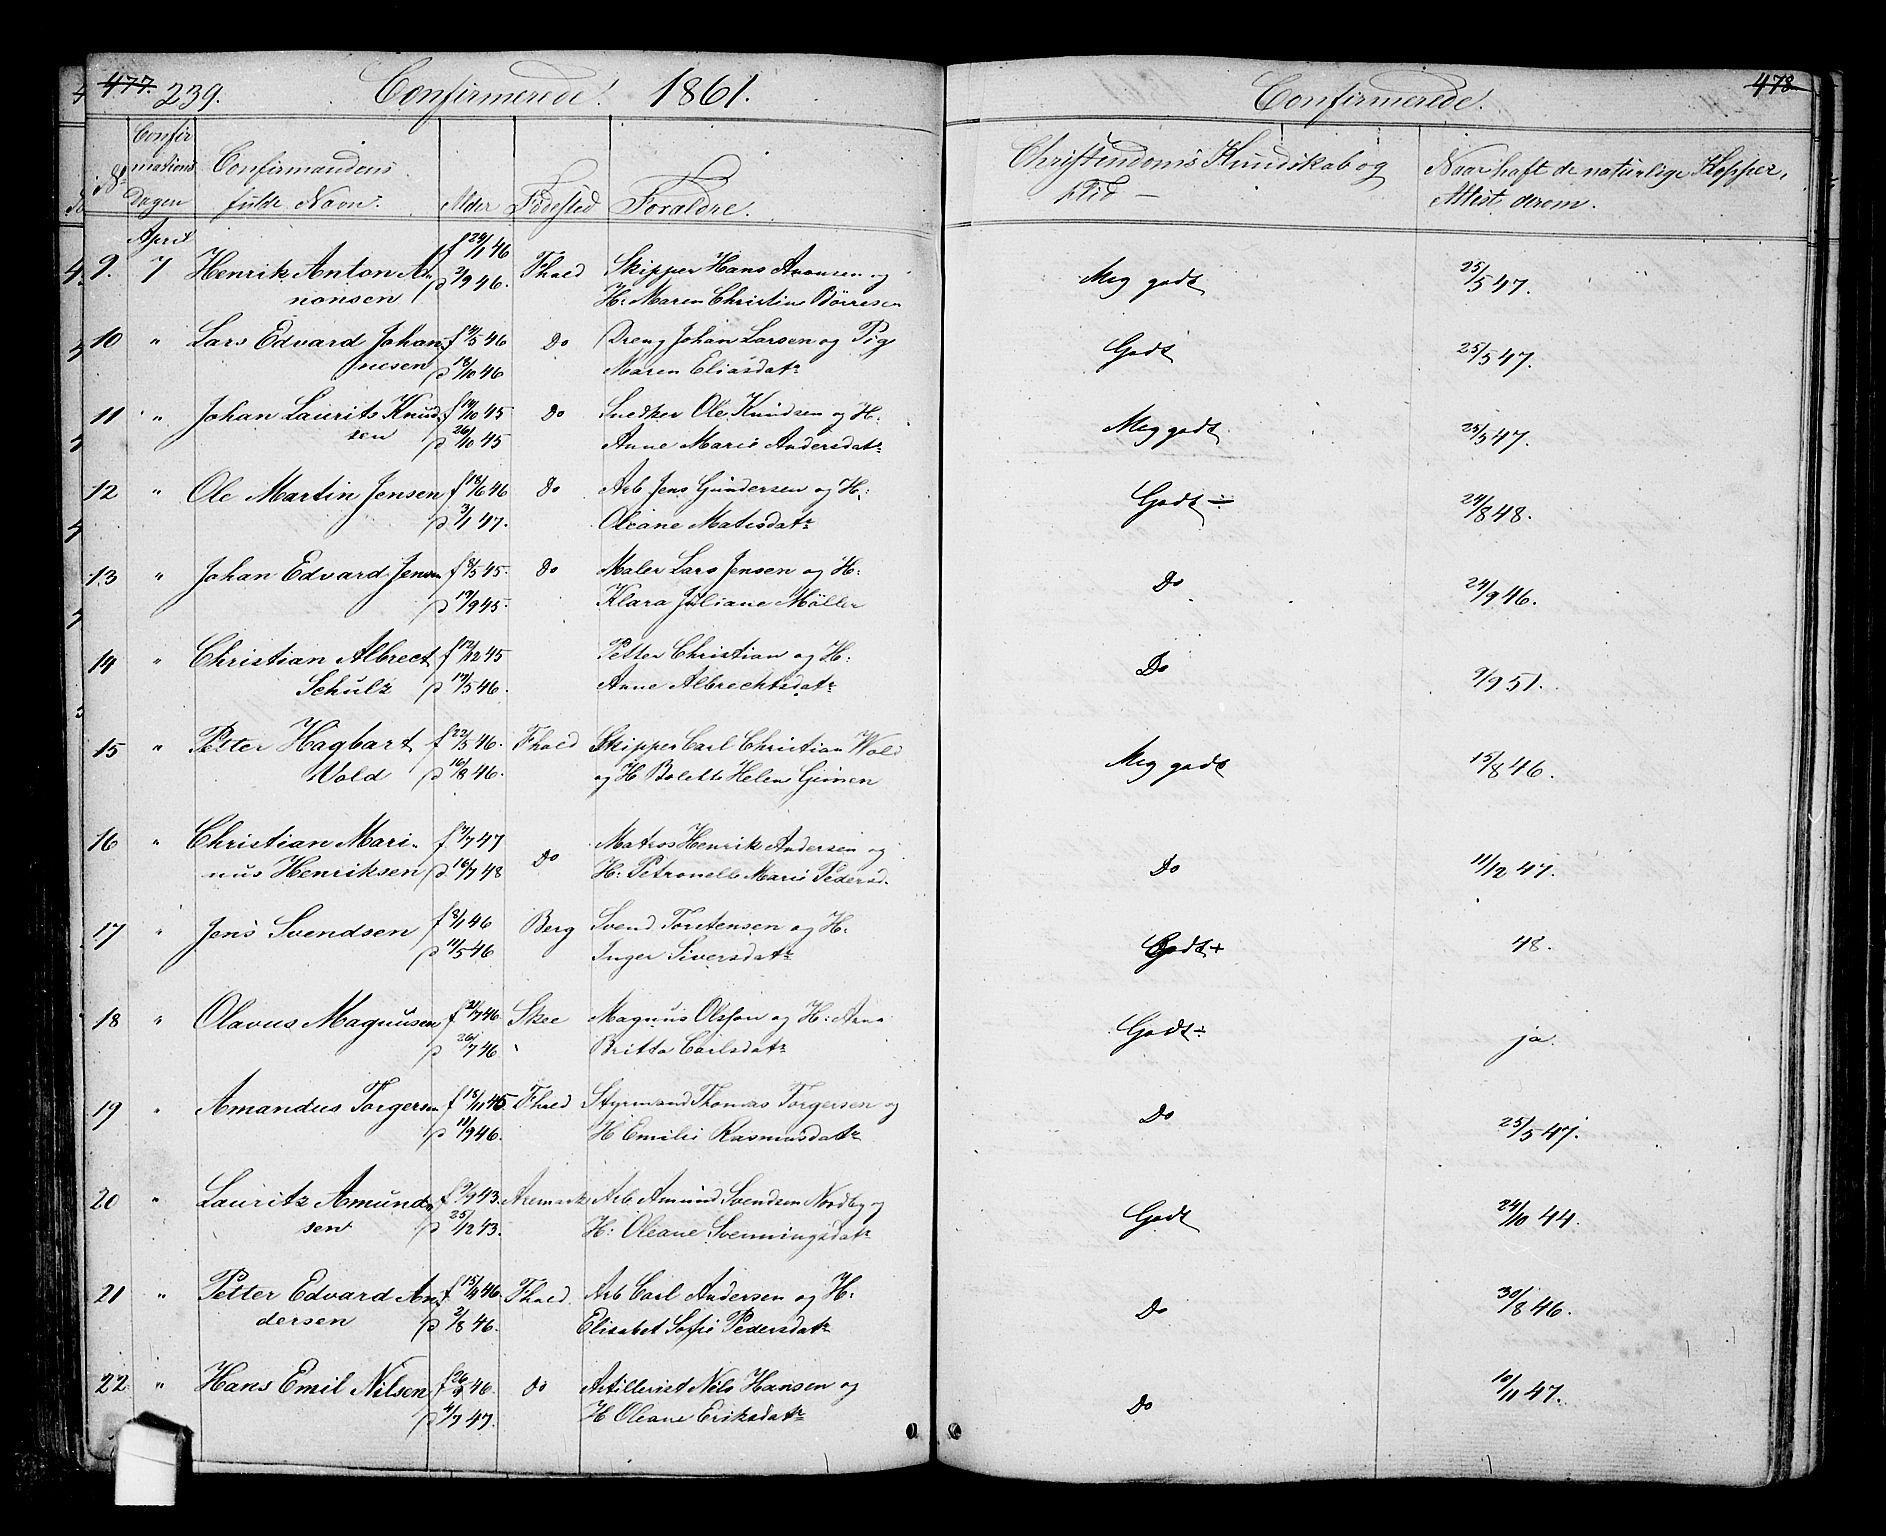 477. 239. Confirmerede. 1861.
No Confirmations Dagen Confirmandens fulde Navn. Alder Fødested Forældre.
April
9. 7 Henrik Anton A- f 24/1 46 Fhald Skipper Hans Aronsen og
nonsen p 2/9 46. H: Maren Christine Börresen
10 " Lars Edvard Johan- f 4/5 46 Do Dreng Johan Larsen og Pige
nesen p 18/10 46 Maren Eliasdatr
11 " Johan Laurits Knud- f 14/10 45 Do Snedker Ole Knudsen og H:
sen p 26/10 45 Anne Marie Andersdatr
12 " Ole Martin Jensen f 18/6 46 Do Arb Jens Gundersen og H:
p 3/1 47. Oleane Matisdatr
13 " Johan Edvard Jensen f 8/5 45. Do Maler Lars Jensen og H:
p 19/9 45. Klara Juliane Möller
14 " Christian Albrect f 12/12 45 Petter Christian og H:
Schulz p 17/5 46. Anne Albrechtsdatr
15 " Petter Hagbart f 22/5 46. Fhald Skipper Carl Christian Wold
Wold p 16/8 46. og H Bolette Helene Gimsen
16 " Christian Mari- f 7/7 47 Do Matros Henrik Andersen og
nus Henriksen p 16/7 48 H: Petronelle Marie Pedersd.
17 " Jens Svendsen f 8/1 46 Berg Svend Torstensen og H:
p 11/5 46 Inger Siversdatr
18 " Olavus Magnusen f 21/7 46. Skee Magnus Olsson og H: Anna
p 26/7 46 " Britta Carlsdatr
19 " Amandus Torgersen f 18/11 45. Fhald Styrmand Thomas Torgersen og
p 11/9 46. H Emilie Rasmusdatr
20 " Lauritz Amund- f 9/9 43. Aremark Arb Amund Svendsen Nordby og
sen p 25/12 43. H: Oleane Svenningsdatr
21 " Petter Edvard An- f 15/4 46. Fhald. Arb Carl Andersen og H:
dersen p 2/8 46. Elisabet Sofie Pedersdatr
22 " Hans Emil Nilsen f 26/9 46. Do Artillerist Nils Hansen og
p 4/7 47. H Oleane Eriksdatr
Confirmerede. 478
Christendoms Kundskab og Naar haft de naturlige Kopper,
Flid — Attest derom.
Meg godt 25/5 47.
Godt 25/5 47.
Meg godt 25/5 47.
Godt ÷ 24/8 48.
Do 24/9 46.
Do 9/9 51.
Meg godt 15/8 46.
Do 11/12 47.
Godt + 48.
Godt ÷ ja.
Do 25/5 47.
Godt 24/10 44.
Do 30/8 46.
Do 10/11 47.